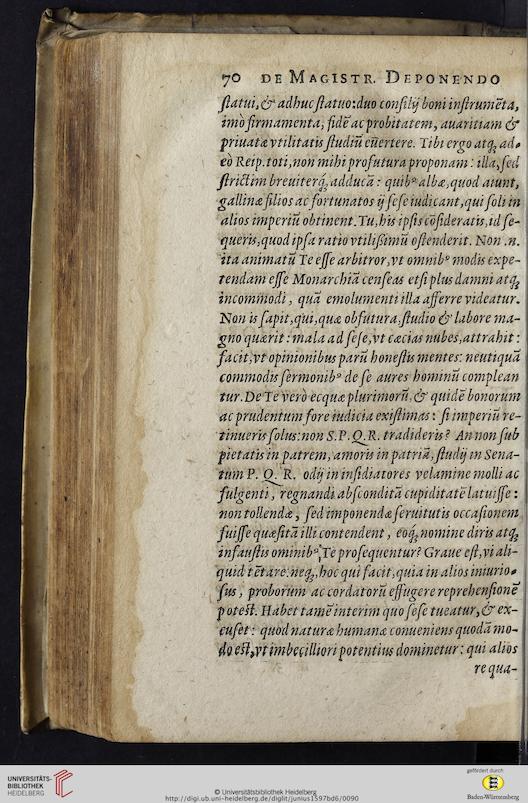 70 DE MAGISTR. DEPONENDO
ſtatui, & adhuc ſtatuo: duo conſilij boni inſtrumēta,
imò firmamenta, fidē ac probitatem, auaritiam &
priuatæ vtilitatis ſtudiū euertere. Tibi ergo atq; ad-
eò Reip. toti, non mihi profutura proponam: illa, ſed
ſtrictim breuiterq́;, adducā: quibꝰ albæ, quod aiunt,
gallinæ filios ac fortunatos ij ſeſe iudicant, qui ſoli in
alios imperiū obtinent. Tu, his ipſis cōſideratis, id ſe-
queris, quod ipſa ratio vtilißimū oſtenderit. Non .n.
ita animatū Te eſſe arbitror, vt omnibꝰ modis expe-
tendam eſſe Monarchiā cenſeas etſi plus damni atq;
incommodi, quā emolumenti illa afferre videatur.
Non is ſapit, qui, quæ obfutura, ſtudio & labore ma-
gno quærit: mala ad ſeſe, vt cæcias nubes, attrahit:
facit, vt opinionibus parū honeſtis mentes: neutiquā
commodis ſermonibꝰ de ſe aures hominū complean
tur. De Te verò ecquæ plurimorū, & quidē bonorum
ac prudentum fore iudicia exiſtimas: ſi imperiū re-
tinueris ſolus: non S.P.Q.R. tradideris? An non ſub
pietatis in patrem, amoris in patriā, ſtudij in Sena-
tum P. Q. R. odij in inſidiatores velamine molli ac
fulgenti, regnandi abſconditā cupiditatē latuiſſe:
non tollendæ, ſed imponendæ ſeruitutis occaſionem
fuiſſe quæſitā illi contendent, eoq́; nomine diris atq;
infauſtis ominibꝰ, Te proſequentur? Graue eſt, vi ali-
quid tētare: neq;, hoc qui facit, quia in alios iniurio-
ſus, proborum ac cordatorū effugere reprehenſionē
poteſt. Habet tamē interim quo ſeſe tueatur, & ex-
cuſet: quod naturæ humanæ conueniens quodā mo-
do eſt, vt imbecilliori potentius dominetur: qui alios
re qua-
UNIVERSITÄTS-
BIBLIOTHEK
HEIDELBERG
© Universitätsbibliothek Heidelberg
http://digi.ub.uni-heidelberg.de/diglit/junius1597bd6/0090
gefördert durch
Baden-Württemberg